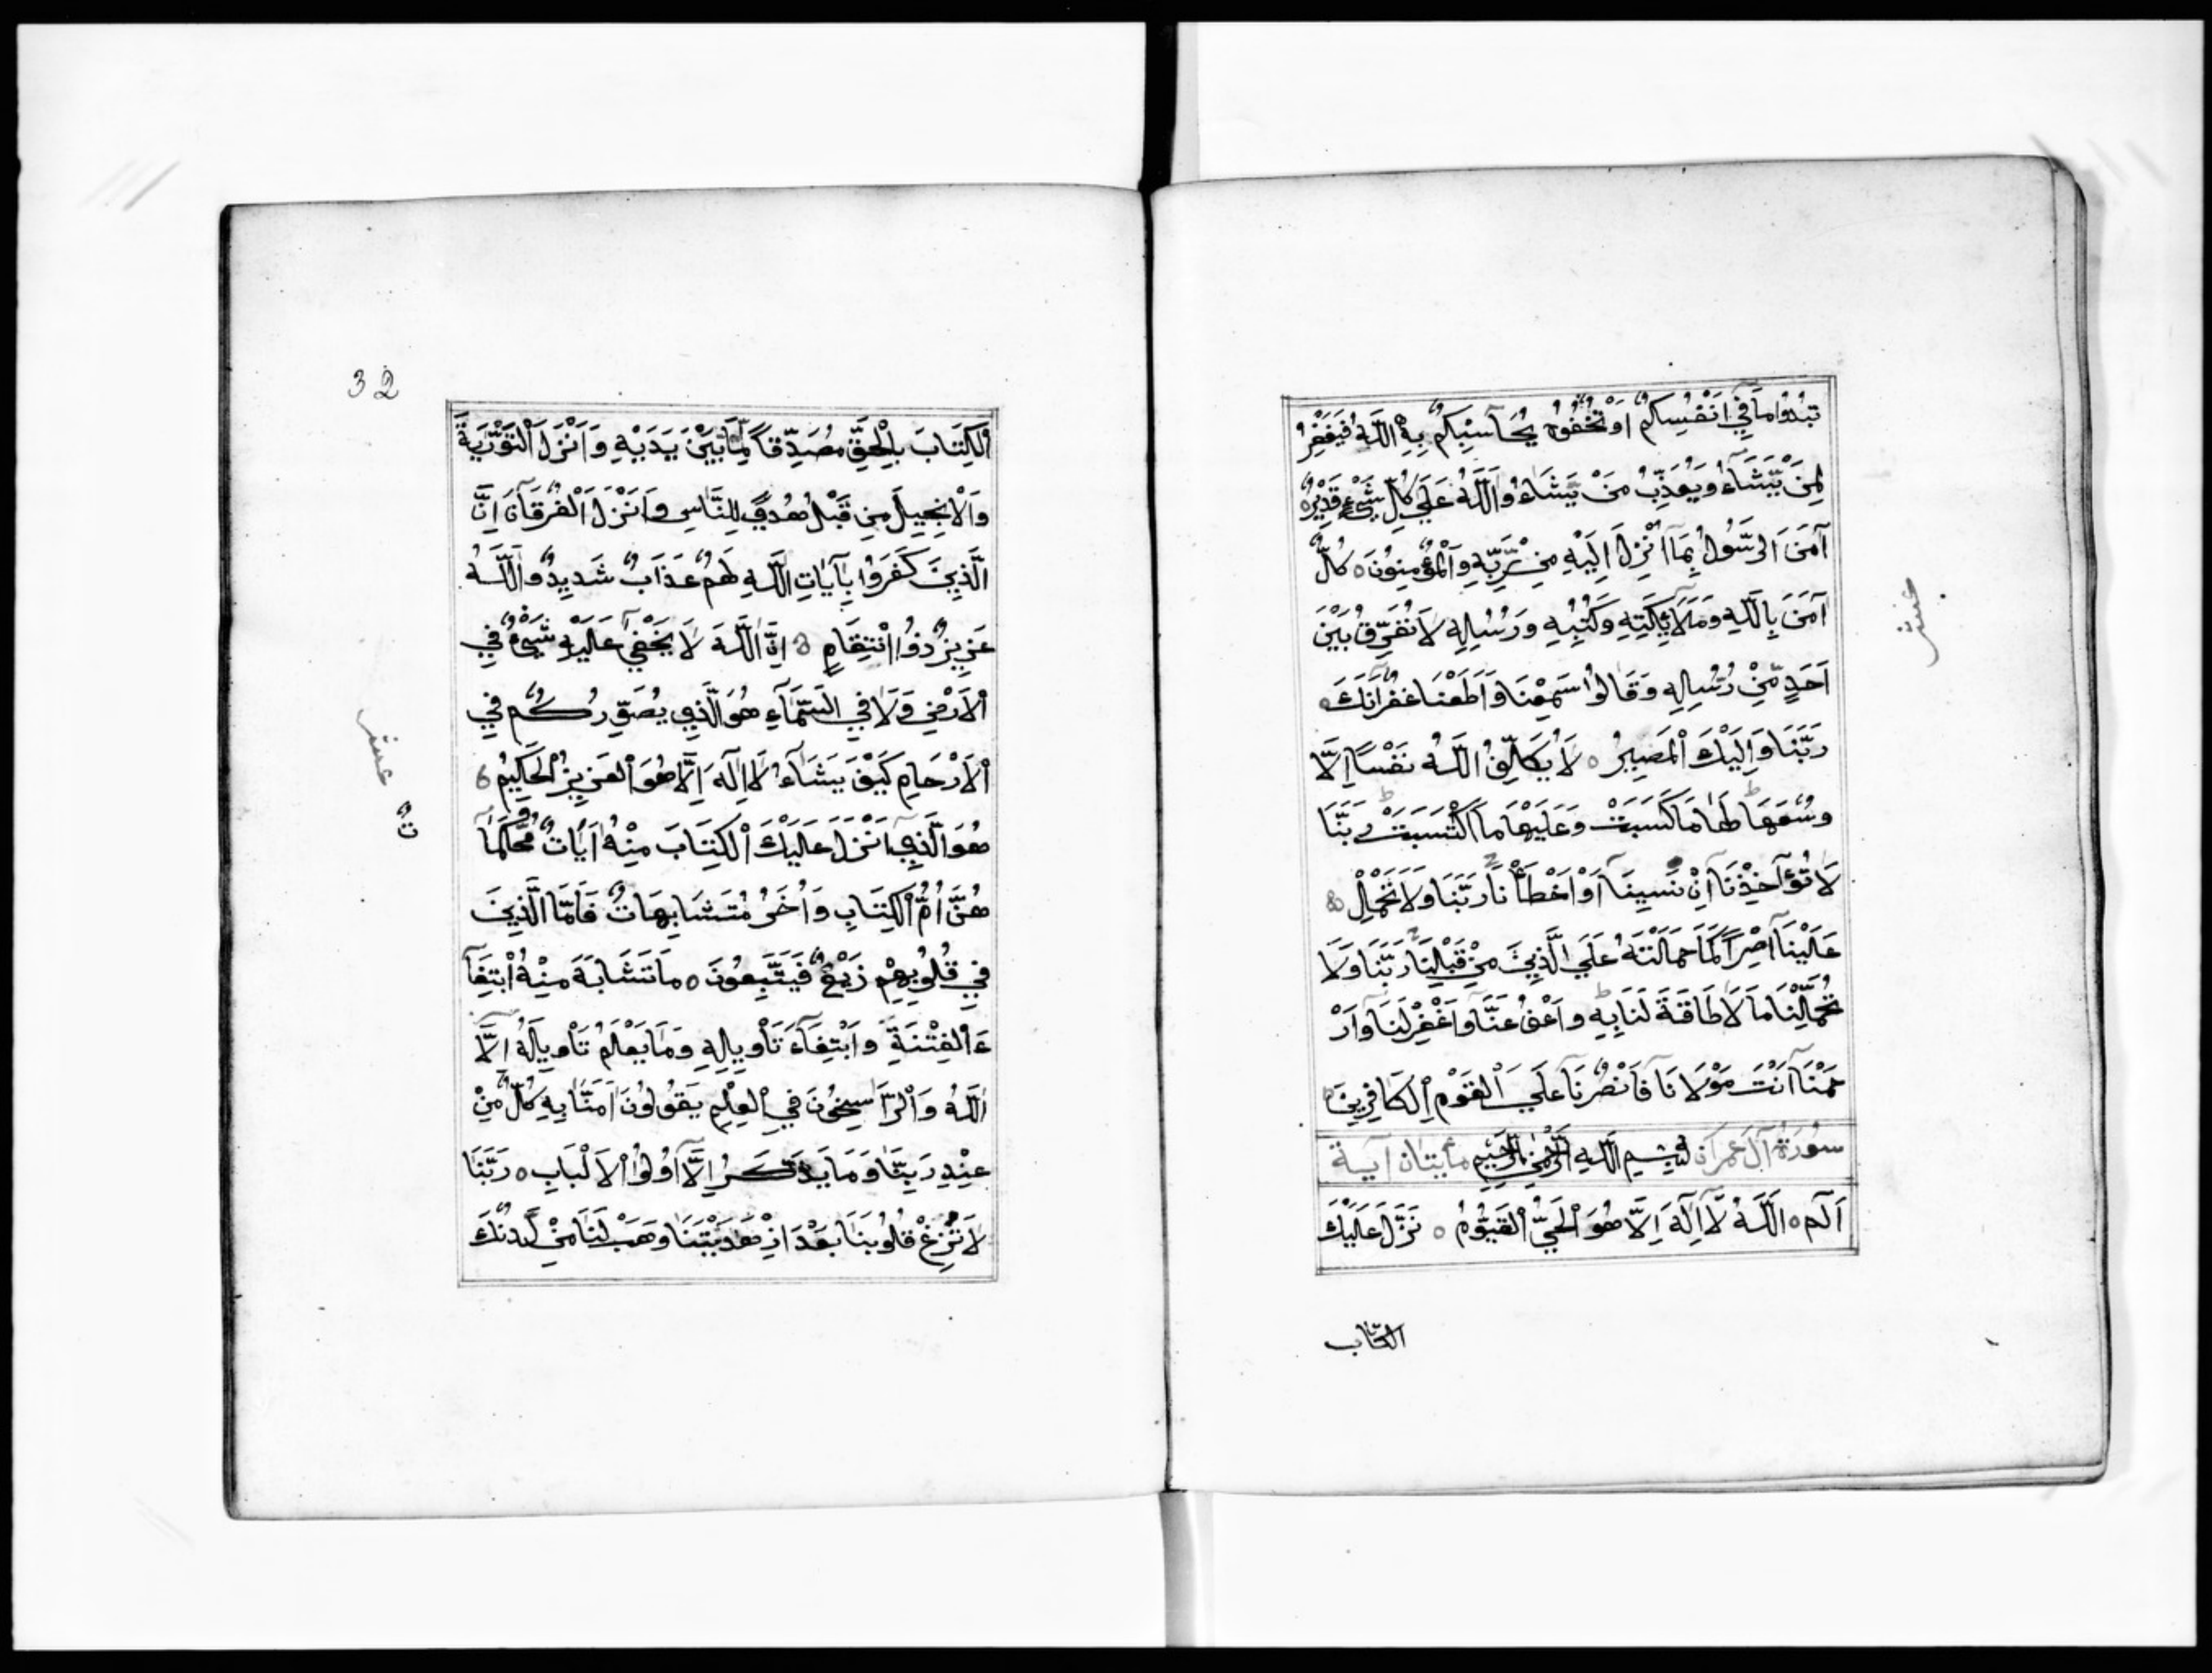 تُبْدُوا مَا فِي اَنْفُسِكُمْ اَوْ تُخْفُوهُ يُحَاسِبْكُمْ بِهِ اللَّهُ فَيَغْفِرُ
لِمَنْ يَّشَاءُ وَيُعَذِّبُ مَنْ يَّشَاءُ وَاللَّهُ عَلَي كُلِّ شَيْءٍ قَدِيْرٌ ٥
آمَنَ الرَّسُولُ بِمَا اُنْزِلَ اِلَيْهِ مِنْ رَّبِّهِ وَالْمُؤْمِنُونَ ٥ كُلٌّ
آمَنَ بِاللَّهِ وَمَلَائِكَتِهِ وَكُتُبِهِ وَرُسُلِهِ لَا نُفَرِّقُ بَيْنَ
اَحَدٍ مِّنْ رُسُلِهِ وَقَالُوا سَمِعْنَا وَاَطَعْنَا غُفْرَانَكَ ٥
رَبَّنَا وَاِلَيْكَ الْمَصِيرُ ٥ لَا يُكَلِّفُ اللَّهُ نَفْسًا اِلَّا
وُسْعَهَا ط لَهَا مَا كَسَبَتْ وَعَلَيْهَا مَا اكْتَسَبَتْ ط رَبَّنَا
لَا تُؤَآخِذْنَا اِنْ نَسِينَا اَوْ اَخْطَأْنَا رَبَّنَا وَلَا تَحْمِلْ
عَلَيْنَا اِصْرًا كَمَا حَمَلْتَهُ عَلَي الَّذِينَ مِنْ قَبْلِنَا رَبَّنَا وَلَا
تُحَمِّلْنَا مَا لَا طَاقَةَ لَنَا بِهِ ط وَاعْفُ عَنَّا وَاغْفِرْ لَنَا وَارْ
حَمْنَا اَنْتَ مَوْلَانَا فَانْصُرْنَا عَلَي الْقَوْمِ الْكَافِرِينَ ٥
سُورَةُ آلَ عِمْرَانَ بِسْمِ اللَّهِ الرَّحْمٰنِ الرَّحِيْمِ مأيتان آية
الم ٥ اَللَّهُ لَا اِلَهَ اِلَّا هُوَ الْحَيُّ الْقَيُّوْمُ ٥ نَزَّلَ عَلَيْكَ
الكتاب
عشر
32
الْكِتَابَ بِالْحَقِّ مُصَدِّقًا لِّمَا بَيْنَ يَدَيْهِ وَاَنْزَلَ التَّوْرَيةَ
وَالْاِنْجِيلَ مِنْ قَبْلُ هُدًي لِلنَّاسِ وَاَنْزَلَ الْفُرْقَانَ اِنَّ
الَّذِينَ كَفَرُوا بِآيَاتِ اللَّهِ لَهُمْ عَذَابٌ شَدِيدٌ وَاللَّهُ
عَزِيزٌ ذُوا انْتِقَامٍ ٥ اِنَّ اللَّهَ لَا يَخْفَي عَلَيْهِ شَيْءٌ فِي
الْاَرْضِ وَلَا فِي السَّمَآءِ هُوَ الَّذِي يُصَوِّرُكُمْ فِي
الْاَرْحَامِ كَيْفَ يَشَآءُ لَا اِلَهَ اِلَّا هُوَ الْعَزِيزُ الْحَكِيْمُ ٥
هُوَ الَّذِي اَنْزَلَ عَلَيْكَ الْكِتَابَ مِنْهُ اَيَاتٌ مُّحْكَمَا
تٌ
هُنَّ اُمُّ الْكِتَابِ وَاُخَرُ مُتَشَابِهَاتٌ فَاَمَّا الَّذِينَ
فِي قُلُوبِهِمْ زَيْغٌ فَيَتَّبِعُونَ ٥ مَا تَشَابَهَ مِنْهُ ابْتِغَآ
ءَ الْفِتْنَةِ وَابْتِغَآءَ تَأْوِيلِهِ وَمَا يَعْلَمُ تَأْوِيلَهُ اِلَّا
اللَّهُ وَالرَّاسِخُونَ فِي الْعِلْمِ يَقُولُونَ آمَنَّا بِهِ كُلٌّ مِّنْ
عِنْدِ رَبِّنَا وَمَا يَذَّكَّرُ اِلَّا اُولُوا الْاَلْبَابِ ٥ رَبَّنَا
لَا تُزِغْ قُلُوبَنَا بَعْدَ اِذْ هَدَيْتَنَا وَهَبْ لَنَا مِنْ لَّدُنْكَ
عشر